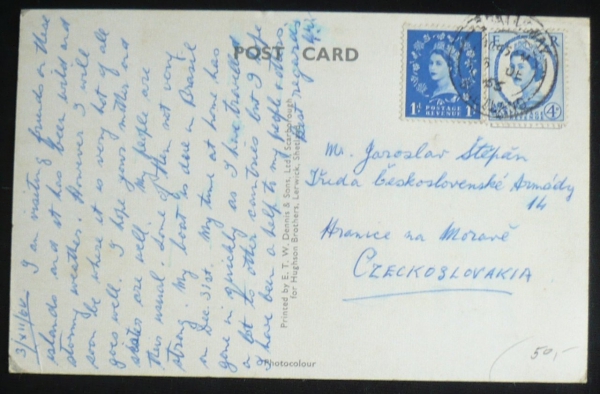 3/XII/64 I am visiting friends on these
islands and it has been wild and
stormy weather. However I will
soon be where it is very hot of all
goes well. I hope your mother and
sisters are well. My people are
this usual. Some of them not very
strong. My boat is due in Brasil
on Dec. 31st. My time at home has
gone in quickly as I have travelled
a bit to other countries but I hope
I have been a help to my people &
Best regards
POST CARD
Printed by E. T. W. Dennis & Sons, Ltd., Scarborough
for Hughson Brothers, Lerwick, Shetland
Photocolour
1D POSTAGE REVENUE 1D
4D
Mr. Jaroslav Štěpán
Třída Československé Armády
14
Hranice na Moravě
CZECKOSLOVAKIA
50,-